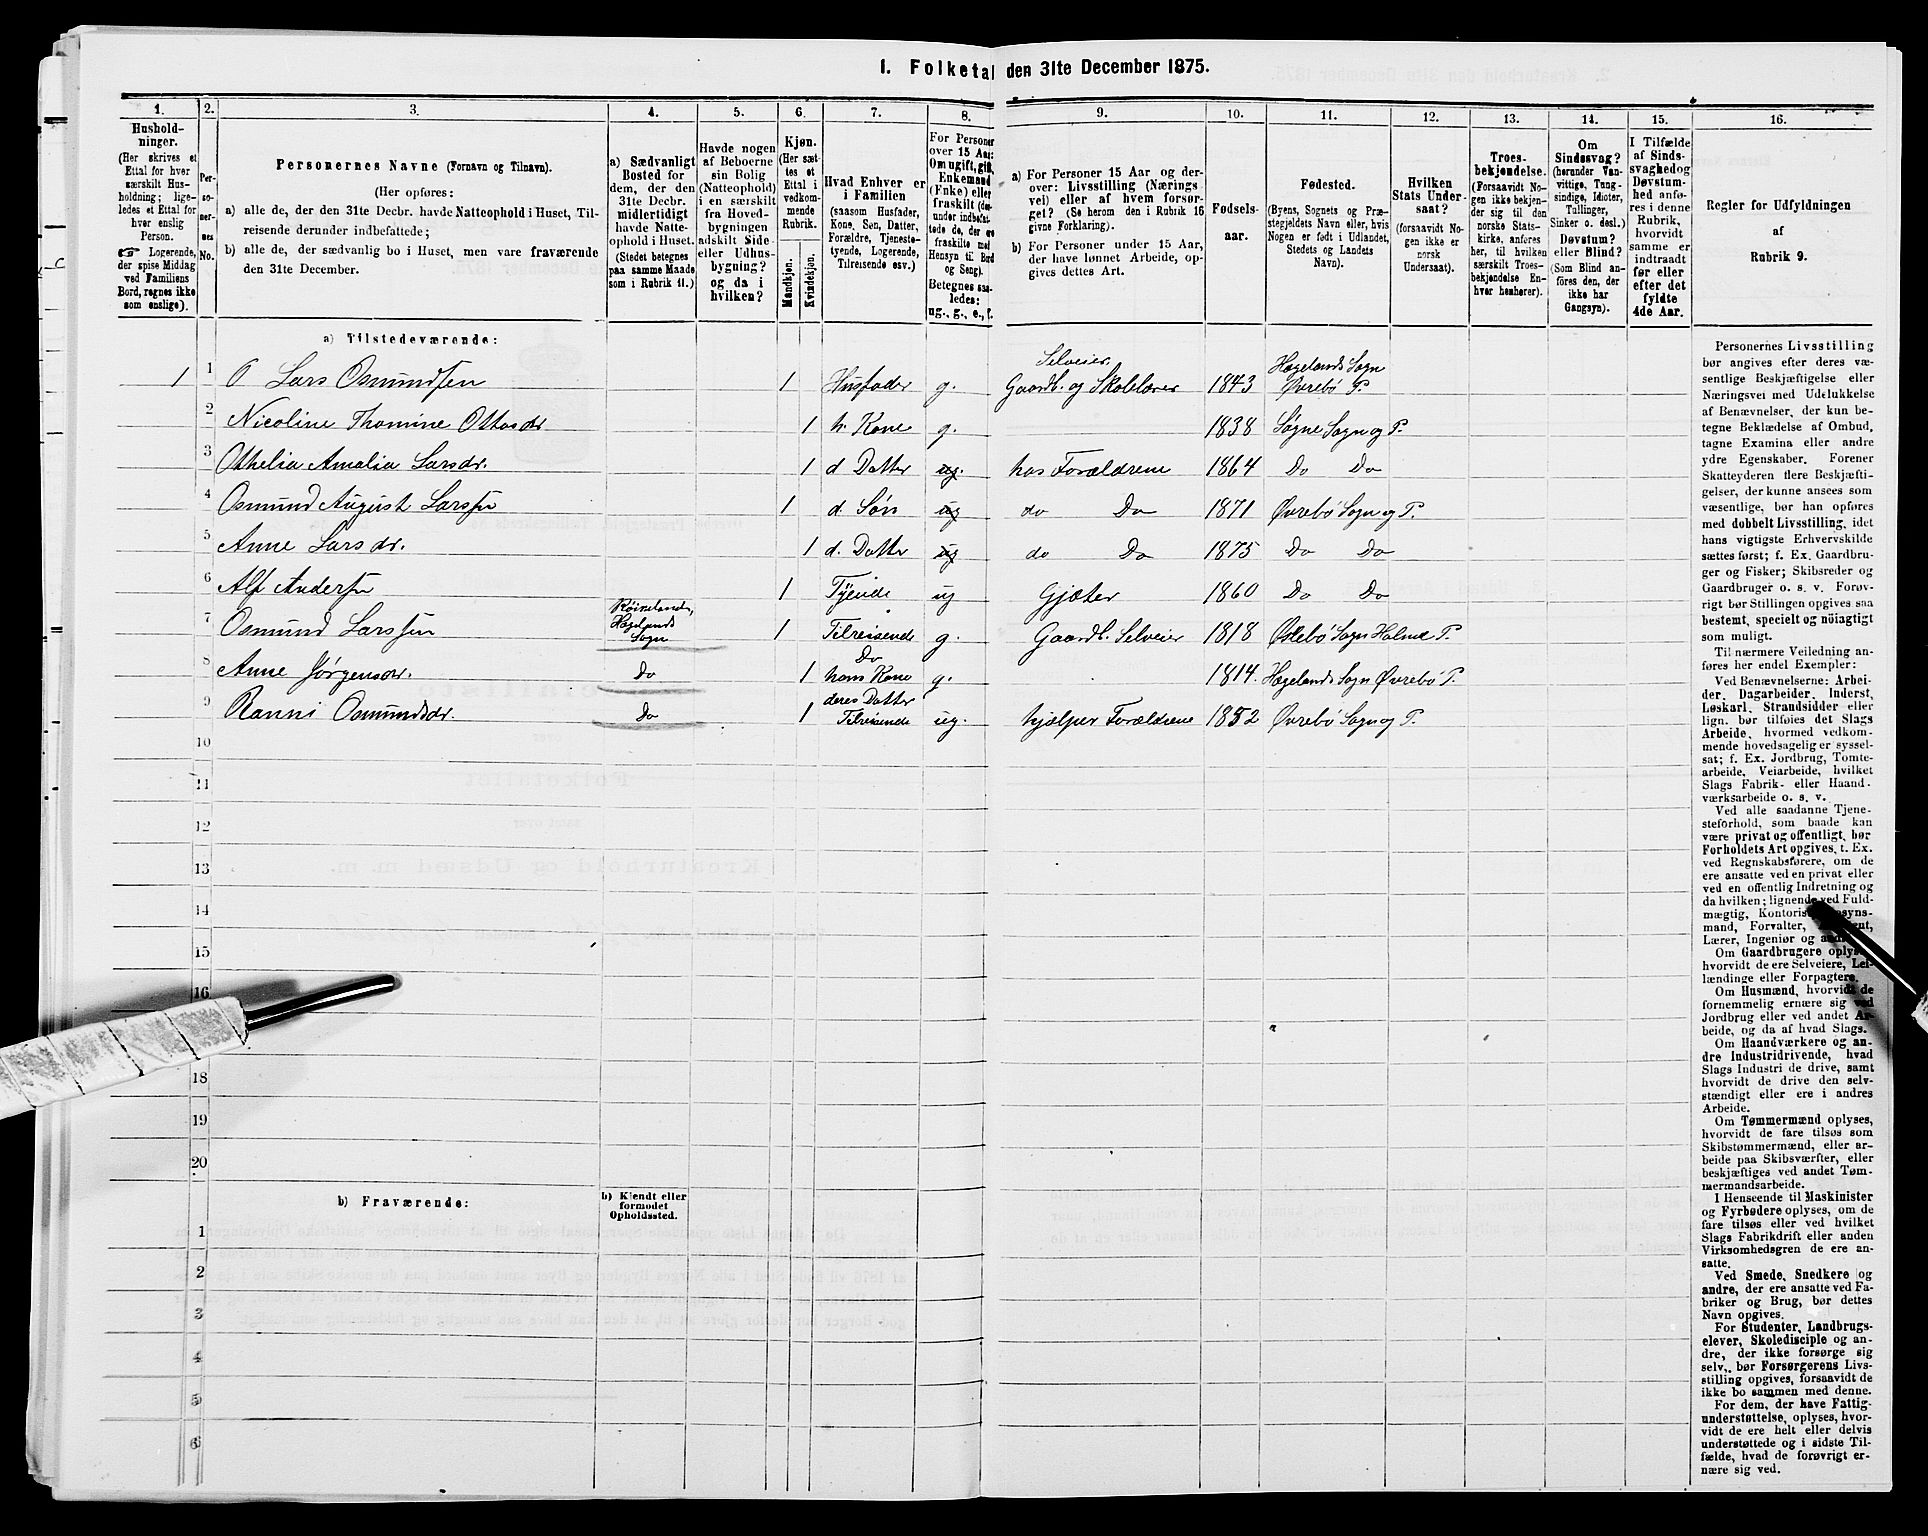 1. Folketal den 31te December 1875.
1. 2. 3. 4. 5. 6. 7. 8. 9. 10. 11. 12. 13. 14. 15. 16.
Hushold-
ninger.
(Her skrives et
Ettal for hver
særskilt Hus-
holdning; lige-
ledes et Ettal for
hver enslig
Person.
☞ Logerende,
der spise Middag
ved Familiens
Bord, regnes ikke
som enslige).
Per-
so-
ner-
nes
No.
Personernes Navne (Fornavn og Tilnavn).
(Her opføres:
a) alle de, der den 31te Decbr. havde Natteophold i Huset, Til-
reisende derunder indbefattede;
b) alle de, der sædvanlig bo i Huset, men vare fraværende
den 31te December.
a) Sædvanligt
Bosted for
dem, der den
31te Decbr.
midlertidigt
havde Natte-
ophold i Huset.
(Stedet betegnes
paa samme Maade
som i Rubrik 11.)
Havde nogen
af Beboerne
sin Bolig
(Natteophold)
i en særskilt
fra Hoved-
bygningen
adskilt Side-
eller Udhus-
bygning?
og da i
hvilken?
Kjøn.
(Her sæt-
tes et
Ettal i
vedkom-
mende
Rubrik.
Mandkjøn.
Kvindekjøn.
Hvad Enhver er
i Familien
(saasom Husfader,
Kone, Søn, Datter,
Forældre, Tjeneste-
tyende, Logerende,
Tilreisende osv.)
For Personer
over 15 Aar:
Om ugift, gift,
Enkemand
(Enke) eller
fraskilt (der-
under indbefat-
tede de, der ere
fraskilte med
Hensyn til Bord
og Seng).
Betegnes saa-
ledes:
ug., g., e., f.
a) For Personer 15 Aar og der-
over: Livsstilling (Nærings-
vei) eller af hvem forsør-
get? (Se herom den i Rubrik 16
givne Forklaring).
b) For Personer under 15 Aar,
der have lønnet Arbeide, op-
gives dettes Art.
Fødsels-
aar.
Fødested.
(Byens, Sognets og Præ-
stegjeldets Navn eller, hvis
Nogen er født i Udlandet,
Stedets og Landets
Navn).
Hvilken
Stats Under-
saat?
(forsaavidt No-
gen ikke er
norsk
Undersaat).
Troes-
bekjendelse.
(Forsaavidt No-
gen ikke bekjen-
der sig til den
norske Stats-
kirke, anføres
her, til hvilken
særskilt Troes-
bekjendelse En-
hver henhører).
Om
Sindssvag?
(herunder Van-
vittige, Tung-
sindige, Idioter,
Tullinger,
Sinker o. desl.)
Døvstum?
eller Blind?
(Som Blind an-
føres den, der
ikke har
Gangsyn).
I Tilfælde
af Sinds-
svaghed og
Døvstum-
hed anfø-
res i denne
Rubrik,
hvorvidt
samme er
indtraadt
før eller
efter det
fyldte
4de Aar.
Regler for Udfyldningen
af
Rubrik 9.
a) Tilstedeværende:
1 1 O Lars Osmundsen 1 Husfader g. Selveier Gaardb. og Skolelærer 1843 Hægelands Sogn Øvrebø P.
2 Nicoline Thomine Ottosdr 1 h. Kone g. 1838 Søgne Sogn og P.
3 Othelia Amalia Larsdr. 1 d Datter ug. hos Forældrene 1864 Do Do
4 Osmund August Larssen 1 d. Søn ug do Do 1871 Øvrebø Sogn og P.
5 Anne Larsdr. 1 d. Datter ug do Do 1875 Do Do
6 Alf Andersen 1 Tyende ug Gjæter 1860 Do Do
7 Osmund Larssen Hægelands Sogn 1 Tilreisende g. Gaardb. Selveier 1818 Øslebø Sogn Holme P.
8 Anne Jørgensdr. Do 1 Do hans Kone g. 1814. Hægelands Sogn Øvrebø P.
9 Ranni Osmundsdr. Do 1 deres Datter Tilreisende ug. hjælper Forældrene 1852 Øvrebø Sogn og P.
10
11
12
13
14
15
16
18
19
20
b) Fraværende:
b) Kjendt eller
formodet
Opholdssted.
1
2
3
4
5
6
Personernes Livsstilling
bør angives efter deres væ-
sentlige Beskjæftigelse eller
Næringsvei med Udelukkelse
af Benævnelser, der kun be-
tegne Beklædelse af Ombud,
tagne Examina eller andre
ydre Egenskaber. Forener
Skatteyderen flere Beskjæfti-
gelser, der kunne ansees som
væsentlige, bør han opføres
med dobbelt Livsstilling, idet
hans vigtigste Erhvervskilde
sættes først; f. Ex. Gaardbru-
ger og Fisker; Skibsreder og
Gaardbruger o. s. v. Forøv-
rigt bør Stillingen opgives saa
bestemt, specielt og nöiagtigt
som muligt.
Til nærmere Veiledning an-
føres her endel Exempler:
Ved Benævnelserne: Arbei-
der, Dagarbeider, Inderst,
Løskarl, Strandsidder eller
lign. bør tilføies det Slags
Arbeide, hvormed vedkom-
mende hovedsagelig er syssel-
sat; f. Ex. Jordbrug, Tomte-
arbeide, Veiarbeide, hvilket
Slags Fabrik- eller Haand-
værksarbeide o. s. v.
Ved alle saadanne Tjene-
steforhold, som baade kan
være privat og offentligt, bør
Forholdets Art opgives, t. Ex.
ved Regnskabsførere, om de
ere ansatte ved en privat eller
ved en offentlig Indretning og
da hvilken; lignende ved Fuld-
mægtig, Kontorist,
mand, Forvalter,
Lærer, Ingeniør og
Om Gaardbrugere oplyses,
hvorvidt de ere Selveiere, Lei-
lændinge eller Forpagtere.
Om Husmænd, hvorvidt de
fornemmelig ernære sig ved
Jordbrug eller ved andet Ar-
beide, og da af hvad Slags.
Om Haandværkere og an-
dre Industridrivende, hvad
Slags Industri de drive, samt
hvorvidt de drive den selv-
stændigt eller ere i andres
Arbeide.
Om Tømmermænd oplyses,
hvorvidt de fare tilsøs som
Skibstømmermænd, eller ar-
beide paa Skibsværfter, eller
beskjæftiges ved andet Tøm-
mermandsarbeide.
I Henseende til Maskinister
og Fyrbødere oplyses, om de
fare tilsøs eller ved hvilket
Slags Fabrikdrift eller anden
Virksomhedsgren de ere an-
satte.
Ved Smede, Snedkere og
andre, der ere ansatte ved Fa-
briker og Brug, bør dettes
Navn opgives.
For Studenter, Landbrugs-
elever, Skoledisciple og an-
dre, der ikke forsørge sig
selv, bør Forsørgerens Livs-
stilling opgives, forsaavidt de
ikke bo sammen med denne.
For dem, der have Fattig-
understøttelse, oplyses, hvor-
vidt de ere helt eller delvis
understøttede og i sidste Til-
fælde, hvad de forøvrigt er-
nære sig ved.